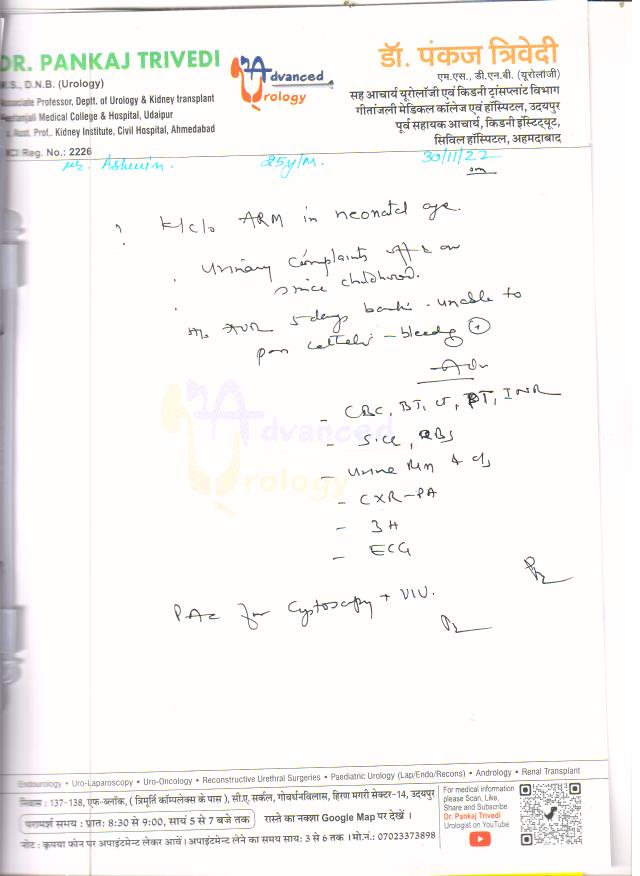 DR. PANKAJ TRIVEDI
M.S., D.N.B. (Urology)
Associate Professor, Deptt. of Urology & Kidney transplant
Geetanjali Medical College & Hospital, Udaipur
Asst. Prof., Kidney Institute, Civil Hospital, Ahmedabad
Reg. No.: 2226
Advanced
Urology
डॉ. पंकज त्रिवेदी
एम.एस., डी.एन.बी. (यूरोलॉजी)
सह आचार्य यूरोलॉजी एवं किडनी ट्रांसप्लांट विभाग
गीतांजली मेडिकल कॉलेज एवं हॉस्पिटल, उदयपुर
पूर्व सहायक आचार्य, किडनी इंस्टिट्यूट,
सिविल हॉस्पिटल, अहमदाबाद
Mr. Ashwin. 25y/M. 30/11/22
K/c/o ARM in neonatal age.
Urinary Complaints off & on
since childhood.
5 days back - unable to
pass catheter - bleeding +
Adv
- CBC, BT, CT, PT, INR
- S. , RBS
- Urine & c/s
- CXR-PA
- 3H
- ECG
PAC for Cystoscopy + VIU.
Advanced
Urology
Endourology • Uro-Laparoscopy • Uro-Oncology • Reconstructive Urethral Surgeries • Paediatric Urology (Lap/Endo/Recons) • Andrology • Renal Transplant
निवास : 137-138, एफ-ब्लॉक, ( त्रिमूर्ति कॉम्पलेक्स के पास ), सी.ए. सर्कल, गोवर्धनविलास, हिरण मगरी सेक्टर-14, उदयपुर
परामर्श समय : प्रातः 8:30 से 9:00, सायं 5 से 7 बजे तक रास्ते का नक्शा Google Map पर देखें ।
नोट : कृपया फोन पर अपाइंटमेन्ट लेकर आवें । अपाइंटमेन्ट लेने का समय सायः 3 से 6 तक । मो.नं.: 07023373898
For medical information
please Scan, Like,
Share and Subscribe
Dr. Pankaj Trivedi
Urologist on YouTube